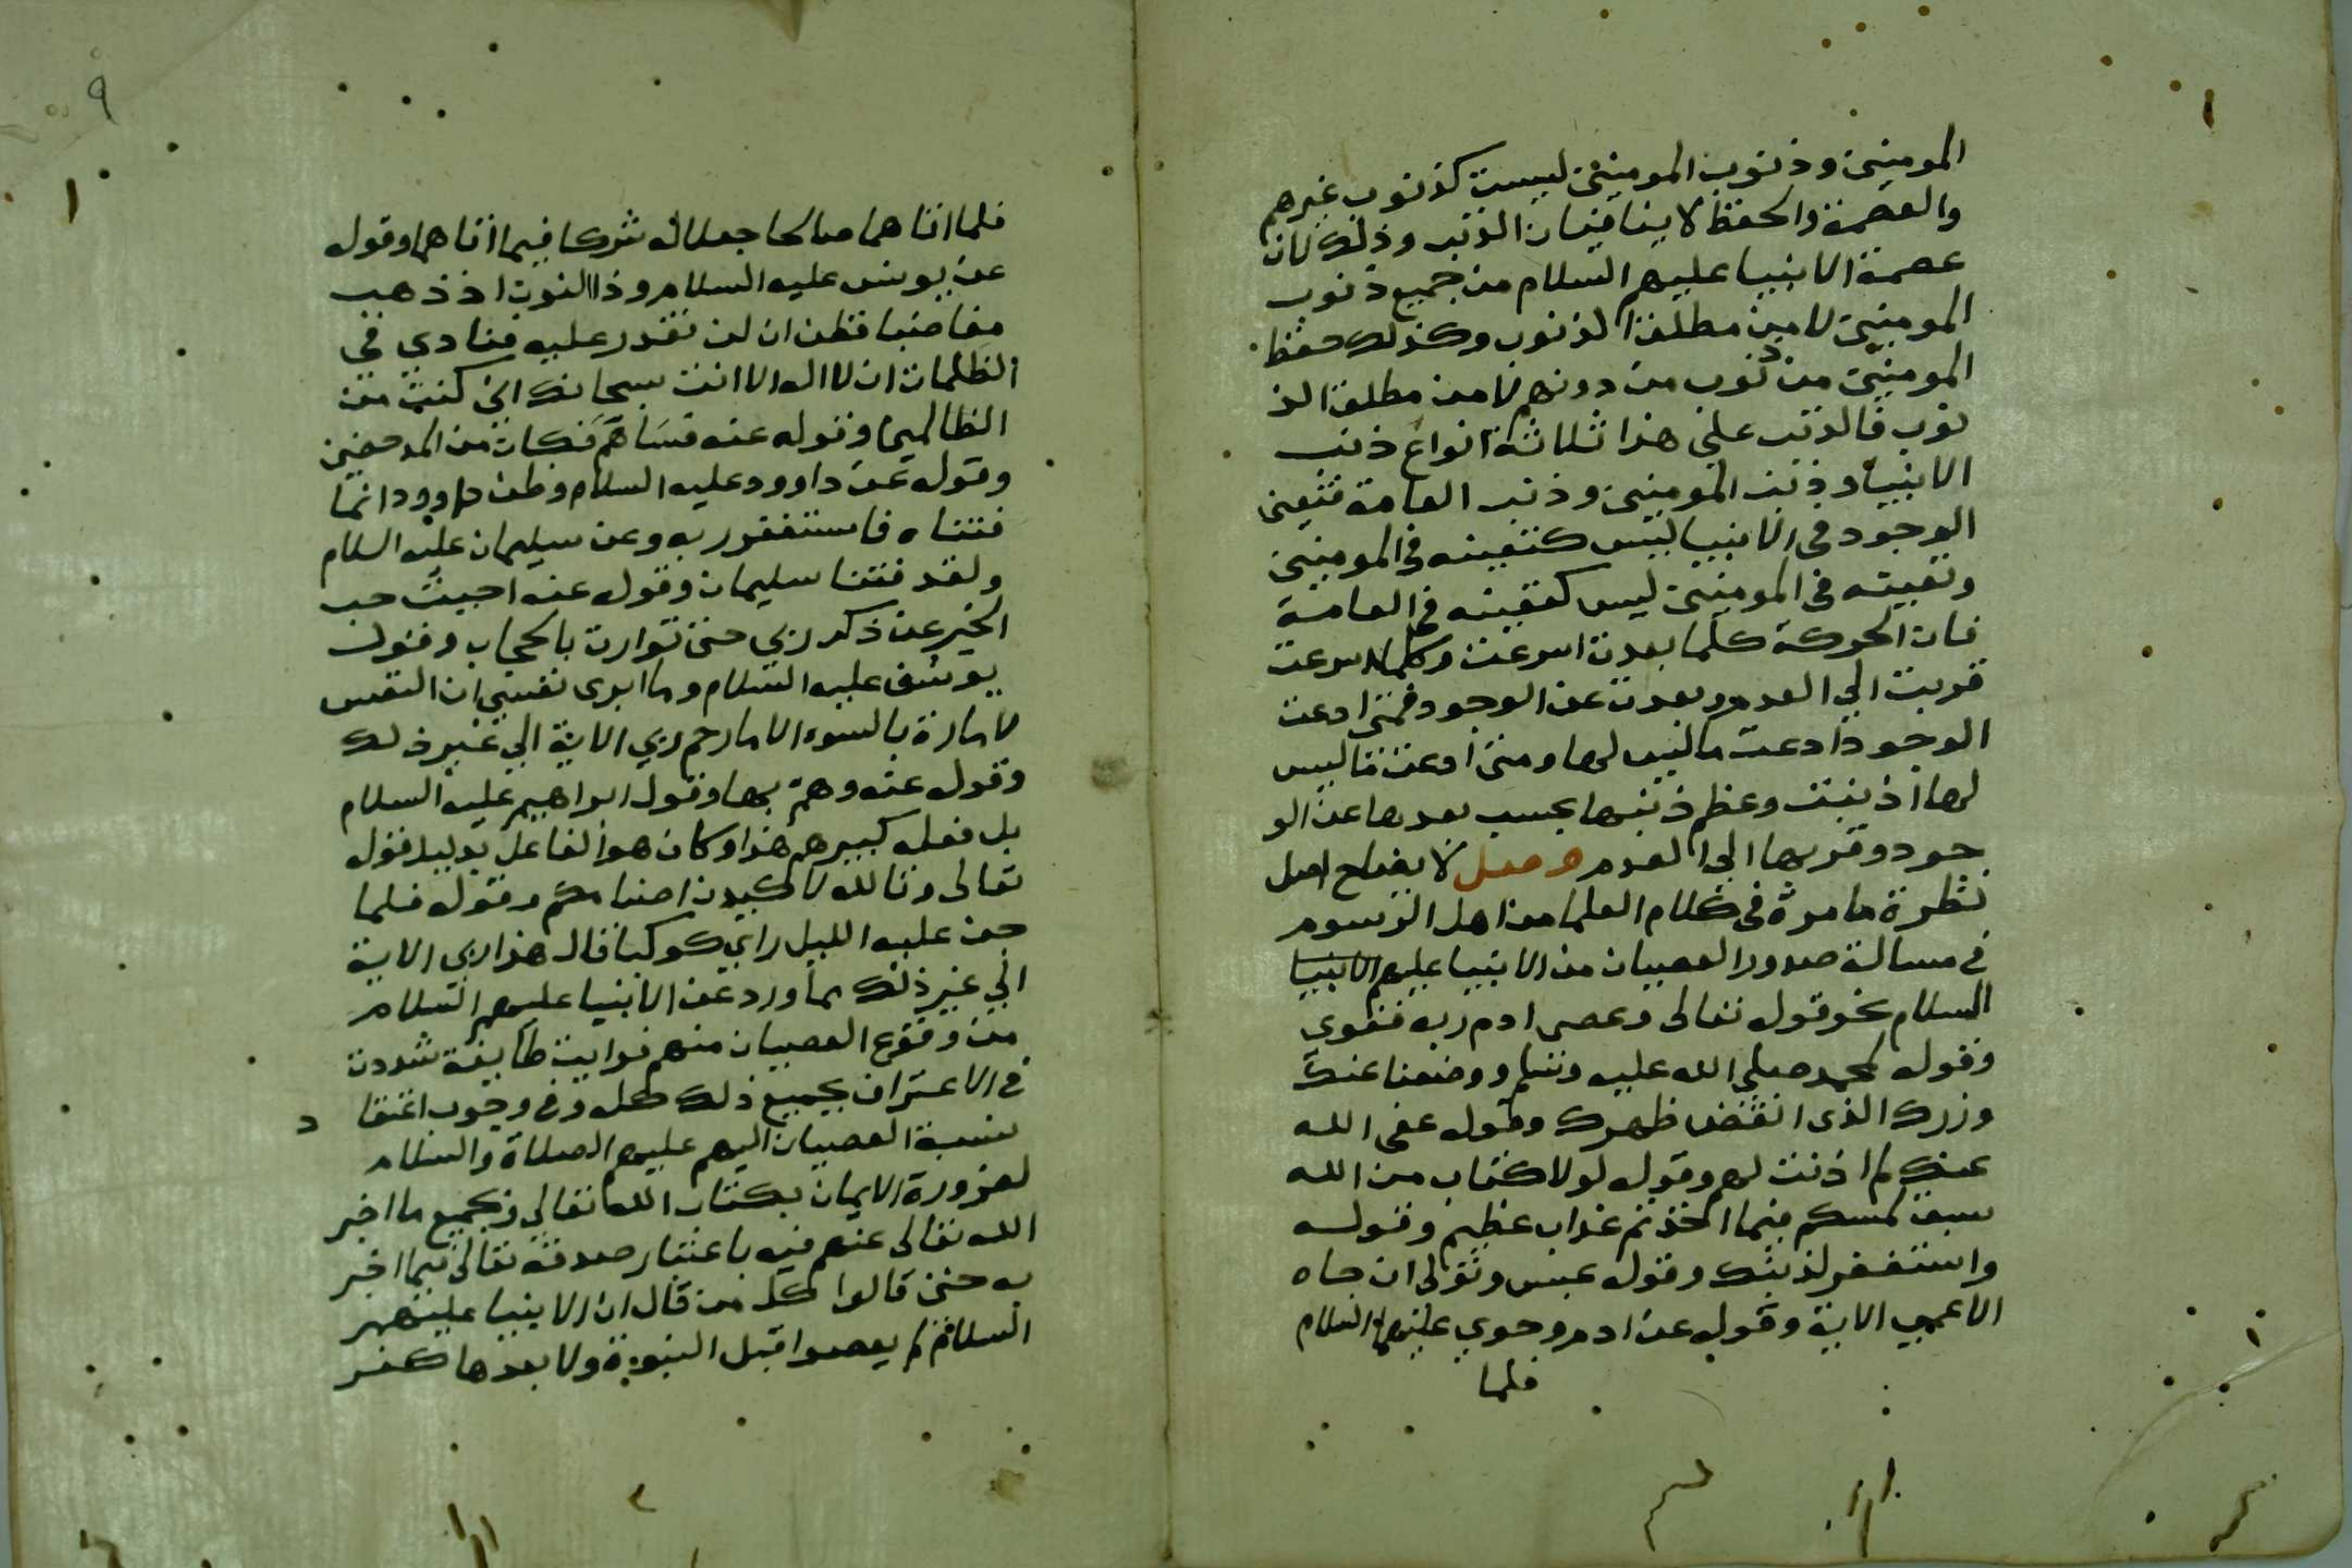 المومنين وذنوب المومنين ليست كذنوب غيرهم
والعصمة والحفظ لا ينافيان الذنب وذلك لان
عصمة الانبيا عليهم السلام من جميع ذنوب
المومنين لا من مطلق الذنوب وكذلك حفظ
المومنين من ذنوب من دونهم لا من مطلق الذ
نوب فالذنب على هذا ثلاثة انواع ذنب
الانبيا وذنب المومنين وذنب العامة فتعين
الوجود في الانبيا ليس كتعينه في المومنين
وتعينه في المومنين ليس كتعينه في العامة
فان الحركة كلما بعدت اسرعت وكلما اسرعت
قربت الي العدم وبعدت عن الوجود فمتى ادعت
الوجود ادعت ما ليس لها ومتى ادعت ما ليس
لها اذنبت وعظم ذنبها بحسب بعدها عن الو
جود وقربها الى العدم وصل لا يضاح اصل
نظرة ما مرة في كلام العلما من اهل الرسوم
في مسالة صدور العصيان من الانبيا عليهم الانبيا
السلام نحو قوله تعالى وعصى ادم ربه فغوى
وقوله لمحمد صلى الله عليه وسلم ووضعنا عنك
وزرك الذى انقض ظهرك وقوله عفى الله
عنك لم اذنت لهم وقوله لولا كتاب من الله
سبق لمسكم فيما اخذتم عذاب عظيم وقوله
واستغفر لذنبك وقوله عبس وتولى ان جاه
الاعمي الاية وقوله عن ادم وحوي عليهما السلام
فلما
٩
فلما اتاهما صالحا جعلا له شركا فيما اتاهما وقوله
عن يونس عليه السلام وذا النون اذ ذهب
مغاضبا فظن ان لن نقدر عليه فنادي في
الظلمات ان لا اله الا انت سبحانك اني كنت من
الظالمين وقوله عنه فساهم فكان من المدحضين
وقوله عن داوود عليه السلام وظن داوود انما
فتناه فاستغفر ربه وعن سليمان عليه السلام
ولقد فتنا سليمان وقوله عنه احببت حب
الخير عن ذكر ربي حتى توارت بالحجاب وقول
يوسف عليه السلام وما ابرى نفسي ان النفس
لامارة بالسوء الا ما رحم ربي الاية الي غير ذلك
وقوله عنه وهم بها وقول ابراهيم عليه السلام
بل فعله كبيرهم هذا وكان هو الفاعل بدليل قوله
تعالى وتالله لاكيدن اصنامكم وقوله فلما
جن عليه الليل راي كوكبا قال هذا ربى الاية
الي غير ذلك مما ورد عن الانبيا عليهم السلام
من وقوع العصيان منهم فرايت طايفة شددت
في الاعتراف بجميع ذلك كله وفي وجوب اعتقا د
نسبة العصيان اليهم عليهم الصلاة والسلام
لضرورة الايمان بكتاب الله تعالي وبجميع ما اخبر
الله تعالى عنهم فيه باعتبار صدقه تعالى فيما اخبر
به حتى قالوا كل من قال ان الانبيا عليهم
السلام لم يعصوا قبل النبوة ولا بعدها كفر